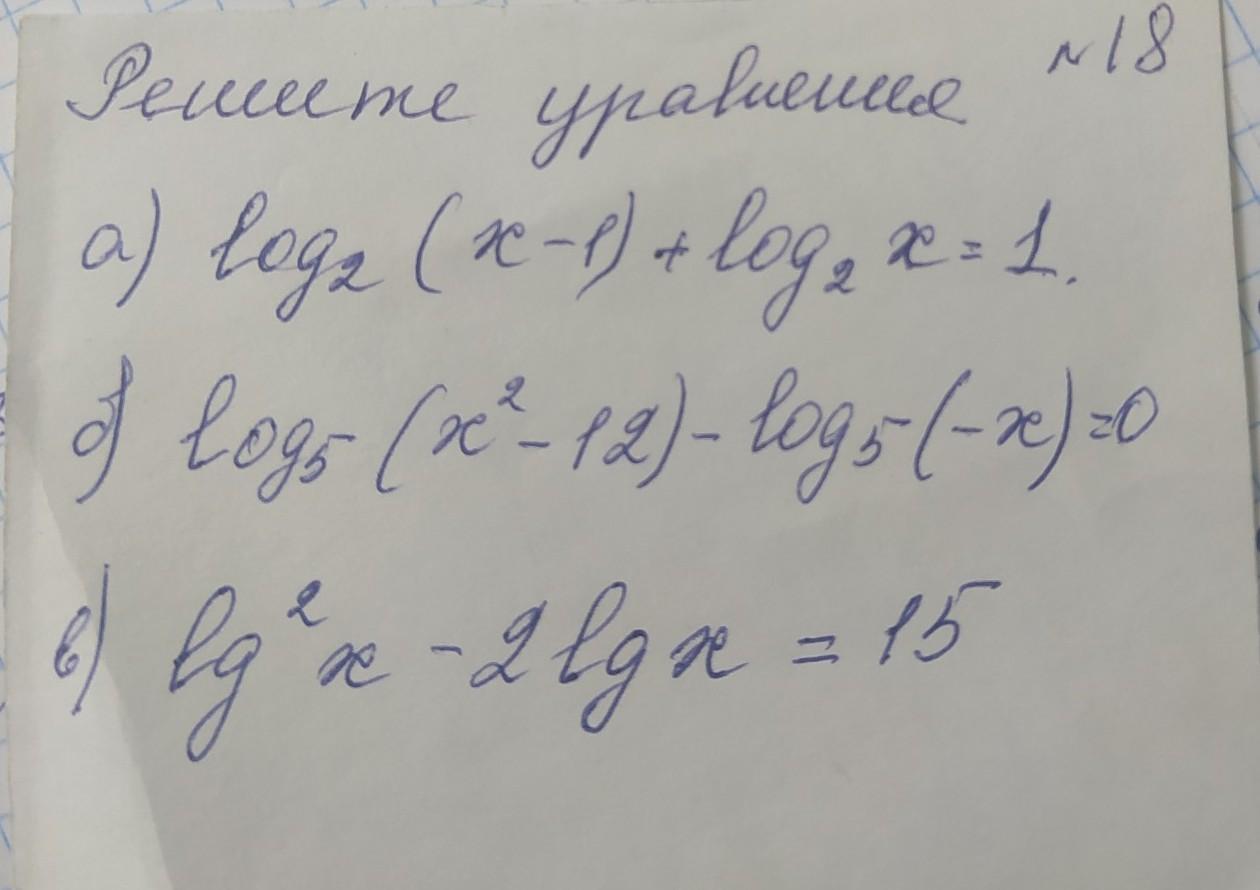 Решите уравнения №18
а) log₂ (x-1) + log₂ x = 1.
б) log₅ (x² - 12) - log₅ (-x) = 0
в) lg² x - 2 lg x = 15